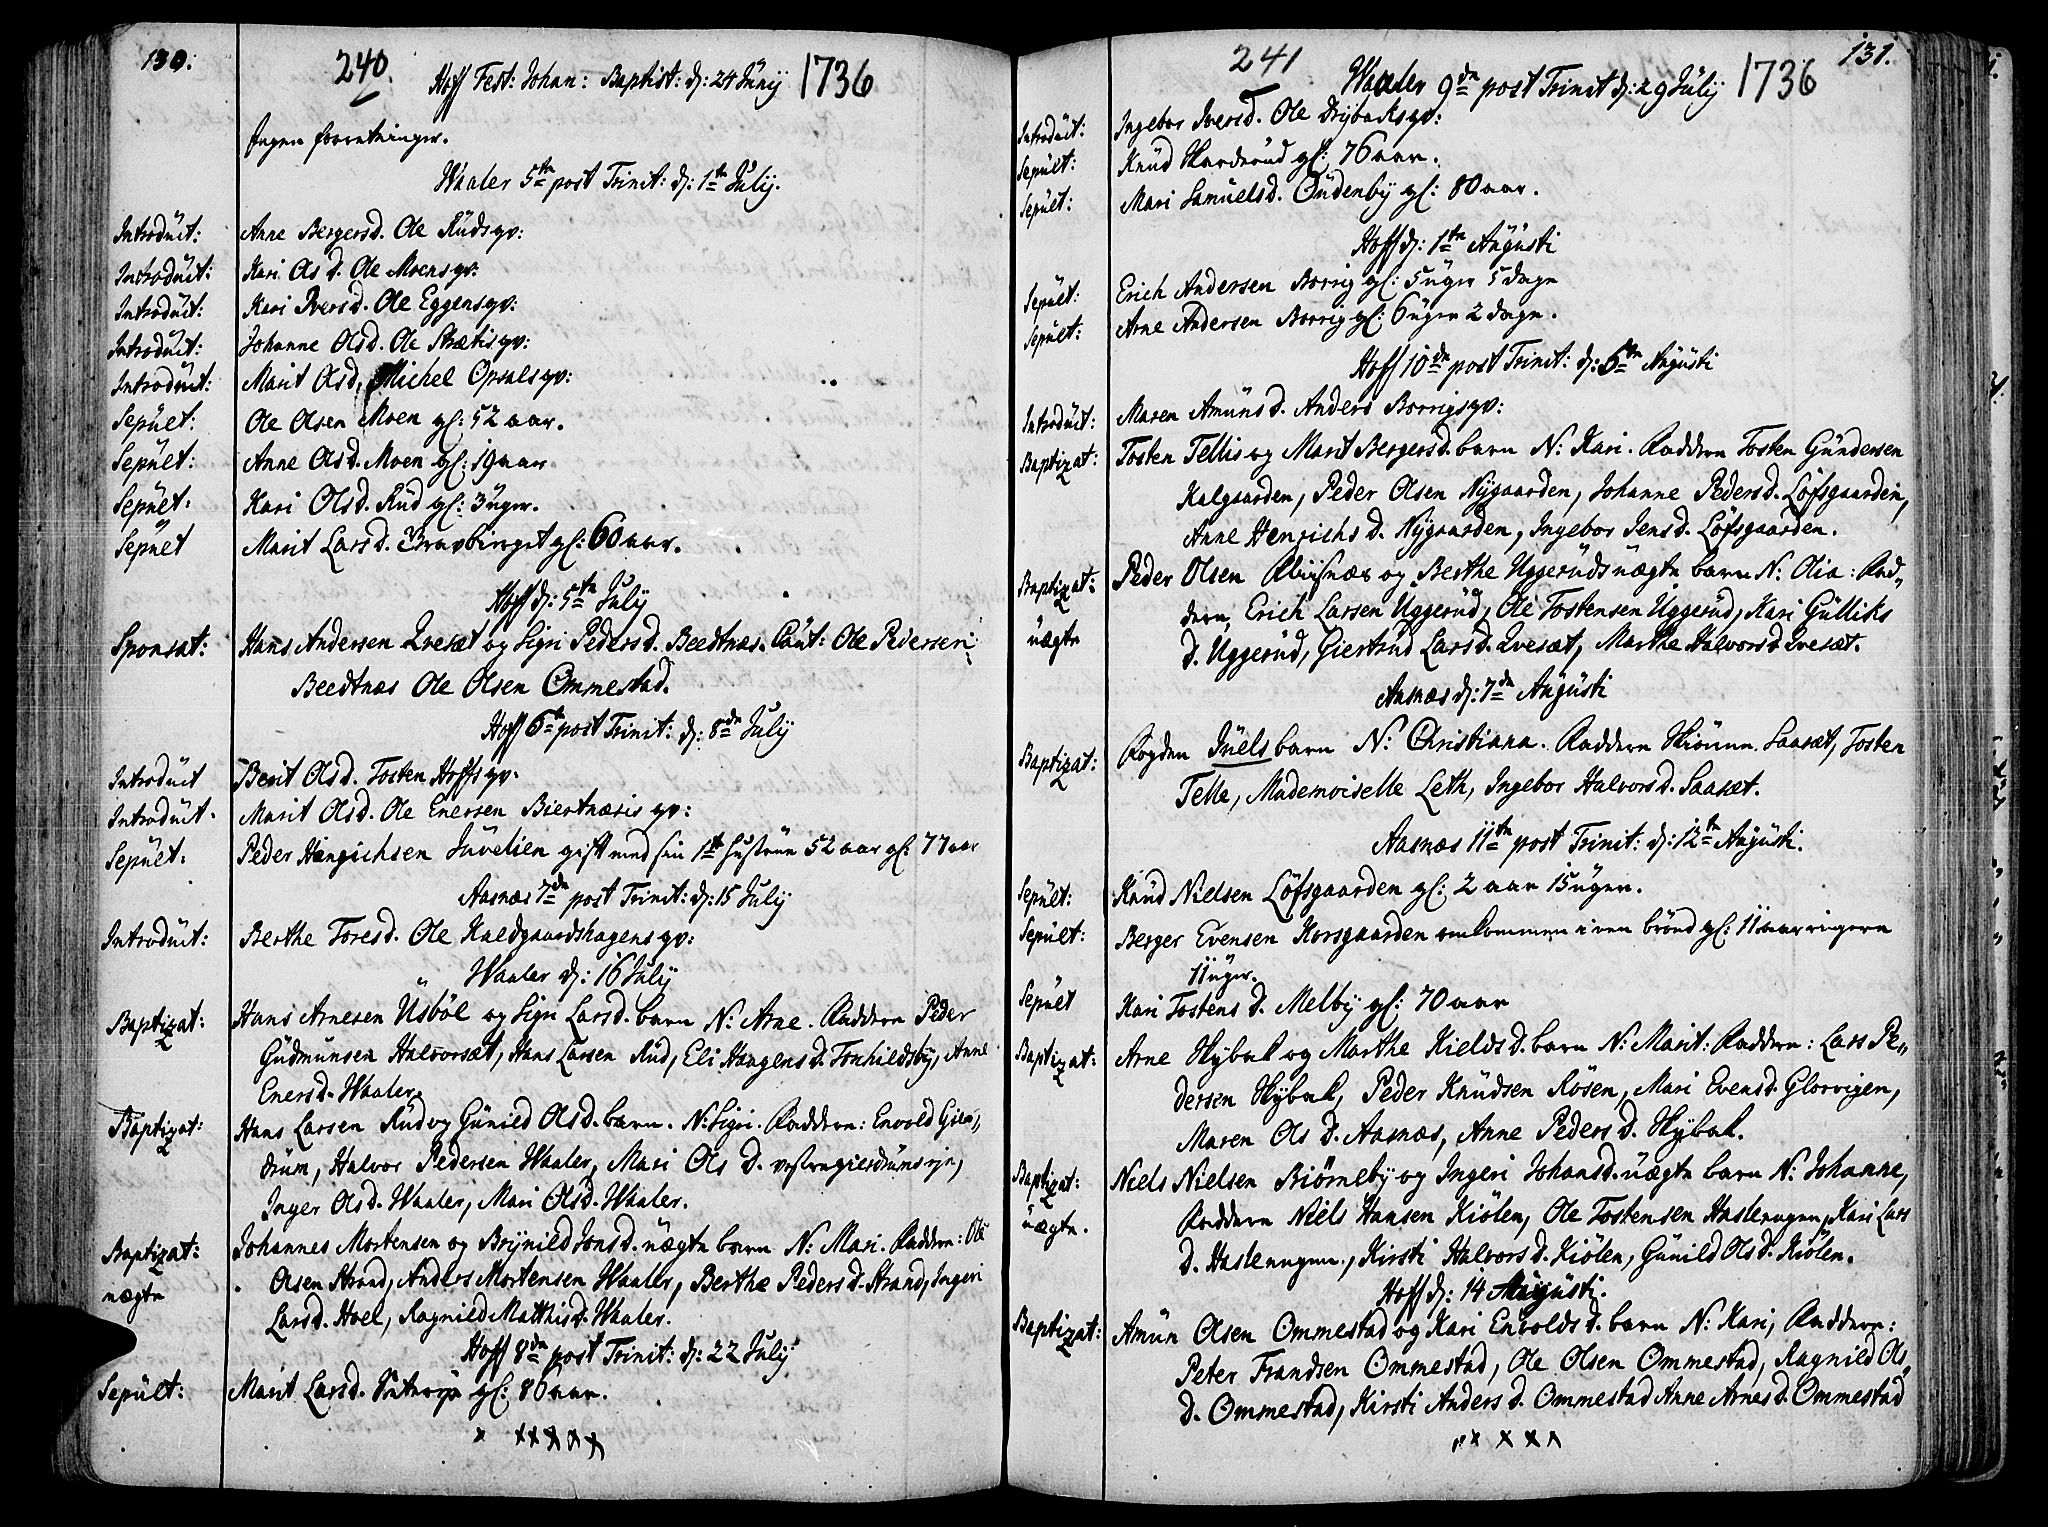 130.
240.
Hoff Fest: Johan: Baptist: d: 24 Junij 1736
Ingen forretninger.
Waaler 5te post Trinit: d: 1te Julij.
Introduit: Anne Bergersd. Ole Rudsqv:
Introduit: Kari Olsd. Ole Moensqv:
Introduit: Kari Iversd. Ole Eggensqv:
Introduit: Johanne Olsd. Ole Strætisqv:
Introduit: Marit Olsd. Michel Opsalsqv:
Sepult: Ole Olsen Moen gl: 52 aar.
Sepult: Anne Olsd. Moen gl: 19 aar
Sepult: Kari Olsd. Rud gl: 3 uger.
Sepult Marit Larsd. gl: 60 aar.
Hoff d: 5te July
Sponsat: Hans Andersen Qvesæt og Sigri Pedersd. Beedtnæs. Caut: Ole Pedersen
Beedtnæs Ole Olsen Ommestad.
Hoff 6te post Trinit: d: 8de July
Introduit Berit Olsd. Tosten Hoffsqv:
Introduit. Marit Olsd. Ole Enersen Biertnæsis qv:
Sepult: Peder Hengichsen Juvelien gift med sin 1te hustrue 52 aar gl: 77 aar
Aasnæs 7de post Trinit: d: 15 July
Introduit: Berthe Toresd. Ole Kaldgaardshagensqv:
Waaler d: 16 July
Baptizat: Hans Arnesen Usböl og Sigri Larsd. barn N: Arne. Faddere Peder
Gudmunsen Halvorsæt, Hans Larsen Rud, Eli Haagensd. Tonhildsby, Anne
Enersd. Waaler.
Baptizat: Hans Larsen Rud og Gunild Olsd. barn. N: Sigri. Faddere: Envold Gier„
drum, Halvor Pedersen Waaler, Mari Ols D.
Inger Olsd. Waaler, Mari Olsd. Waaler.
Baptizat: Johannes Mortensen og Brynild Jonsd. uægte barn N: Mari. Faddere: Ole
uægte Olsen Strand, Anders Mortensen Waaler, Berthe Pedersd. Strand, Ingeri
Larsd. Hoel, Ragnild Matthisd. Waaler.
Hoff 8de post Trinit: d: 22 July
Sepult: Marit Larsd. gl: 86 aar.
131.
241
Waaler 9de post Trinit d: 29 July 1736
Introduit: Ingebor Iversd. Ole Drybaksqv:
Sepult: Knud Skarderud gl: 76 aar.
Sepult: Mari Samuelsd. Oudenby gl: 80 aar.
Hoff d: 1te Augusti
Sepult: Erich Andersen Borrig gl: 5 uger 5 dage
Sepult: Arne Andersen Borrig gl: 6 uger 2 dage.
Hoff 10de post Trinit: d: 5te Augusti
Introduit: Maren Amunsd. Anders Borrigsqv:
Baptizat: Tosten Tellis og Marit Bergersd. barn N: Kari. Faddere Tosten Gundersen
Kalgaarden, Peder Olsen Nygaarden, Johanne Pedersd. Löfsgaarden,
Anne Henrichs D. Nygaarden, Ingebor Jensd. Löfsgaarden.
Baptizat: Peder Olsen og Berthe Uggeruds uægte barn N: Olia: Fad„
uægte dere, Erich Larsen Uggerud, Ole Tostensen Uggerud, Kari Gulliks
d. Uggerud, Giertrud Larsd. Qvesæt, Marthe Halvorsd. Qvesæt.
Aasnæs d: 7de Augusti
Baptizat: Fogden Juels barn N: Christiana. Faddere Saaset, Tosten
Telle, Mademoiselle Leth, Ingebor Halvorsd. Saaset.
Aasnæs 11te post Trinit: d: 12te Augusti.
Sepult: Knud Nielsen Löfsgaarden gl: 2 aar 15 uger.
Sepult: Berger Evensen Korsgaarden omkommen i en brönd gl: 11 aar ringere
11 uger.
Sepult Kari Tostens D. Melby gl: 70 aar
Baptizat: Arne Skybak og Marthe Kields D. barn N: Marit: Faddere: Lars Pe„
dersen Skybak, Peder Knudsen Rösen, Mari Evensd. Glorvigen,
Maren Ols D. Aasnæs, Anne Peders D. Skybak.
Baptizat: Niels Nielsen Biörneby og Ingeri Johansd. uægte barn N: Johanne,
uægte. Faddere Niels Hansen Kiölen, Ole Tostensen Haslerugen, Kari Lars
D. Haslerugen, Kirsti Halvors D. Kiölen, Gunild Olsd. Kiölen.
Hoff d: 14 Augusti.
Baptizat: Amun Olsen Ommestad og Kari Envolds D. barn N: Kari, Faddere:
Peter Frandsen Ommestad, Ole Olsen Ommestad, Ragnild Ols
D. Ommestad, Kirsti Anders D. Ommestad Anne Arnes D. Ommestad